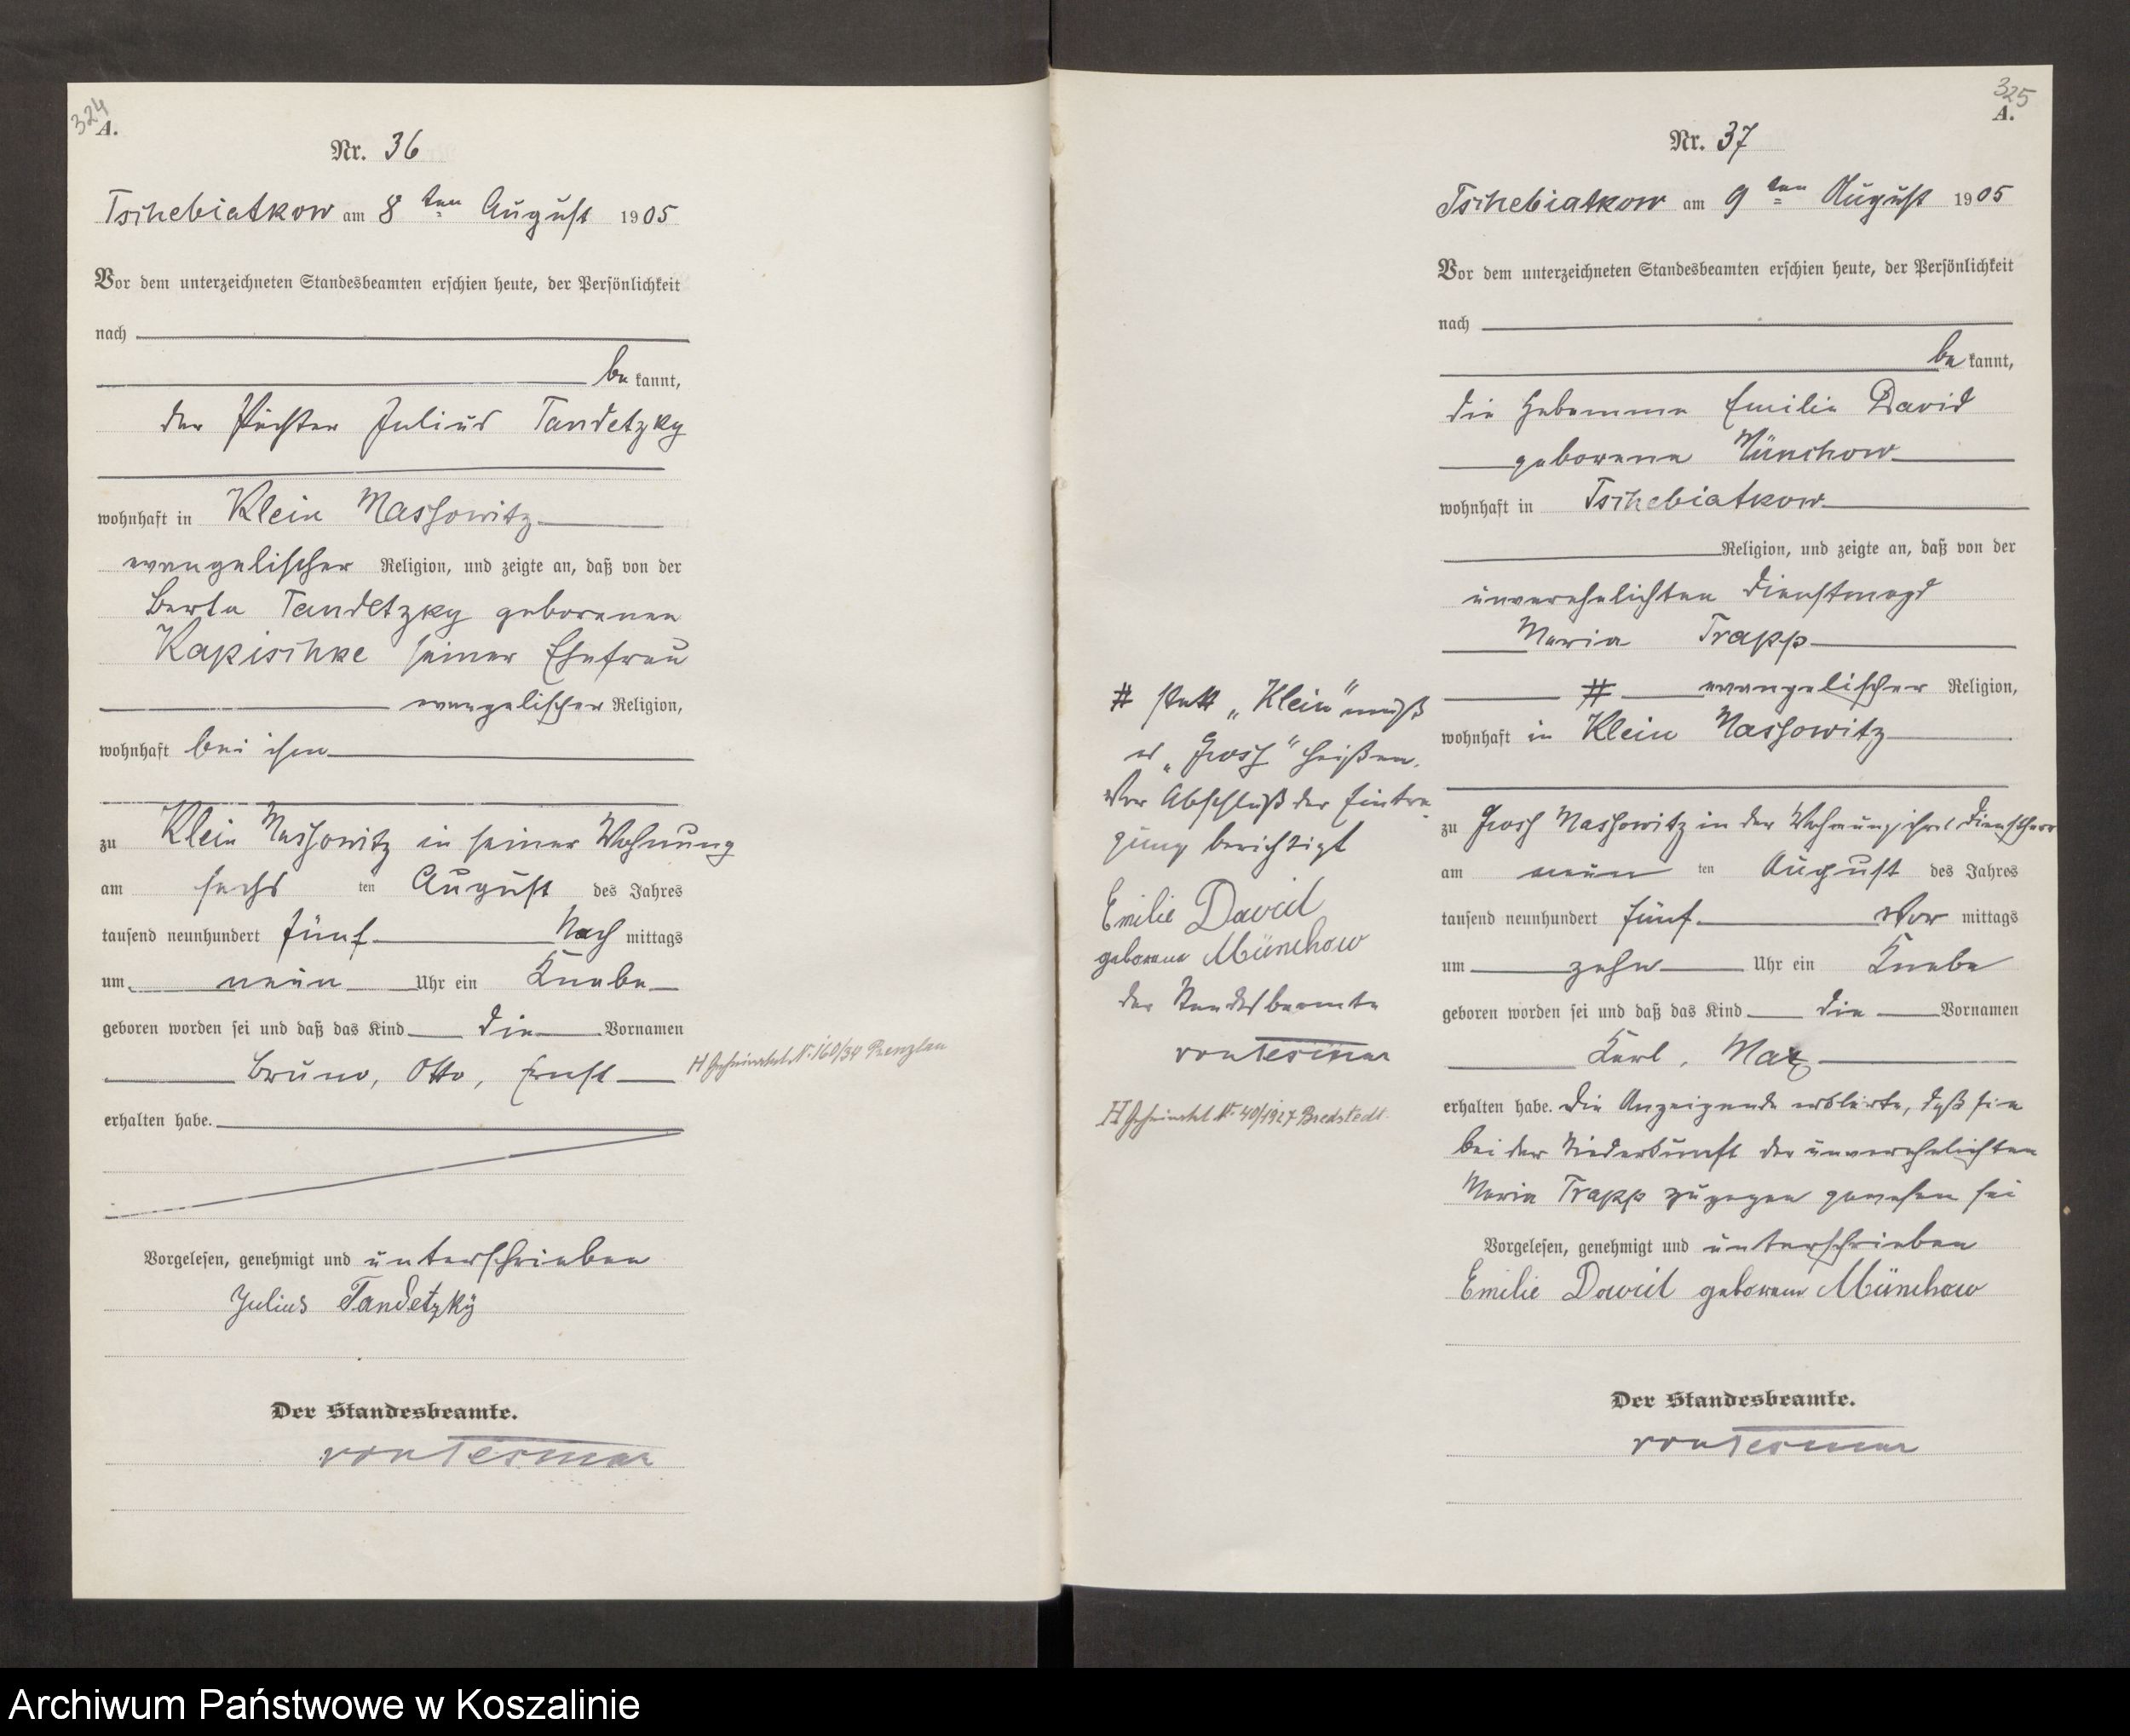 324
A.
Nr. 36
Tschebiatkow am 8ten August 1905
Vor dem unterzeichneten Standesbeamten erschien heute, der Persönlichkeit
nach
be kannt,
der Pächter Julius Tandetzky
wohnhaft in Klein Massowitz
evangelischer Religion, und zeigte an, daß von der
Berta Tandetzky geborenen
Kapischke seiner Ehefrau
evangelischer Religion,
wohnhaft bei ihm
zu Klein Massowitz in seiner Wohnung
am sechs ten August des Jahres
tausend neunhundert fünf Nach mittags
um neun Uhr ein Knabe
geboren worden sei und daß das Kind die Vornamen
Bruno, Otto, Ernst
H Geheiratet N. 160/34 Prenzlau
erhalten habe.
Vorgelesen, genehmigt und unterschrieben
Julius Tandetzky
Der Standesbeamte.
von Tesmar
325
A.
Nr. 37
Tschebiatkow am 9ten August 1905
Vor dem unterzeichneten Standesbeamten erschien heute, der Persönlichkeit
nach
be kannt,
die Hebamme Emilie David
geborene Münchow
wohnhaft in Tschebiatkow
Religion, und zeigte an, daß von der
unverehelichten Dienstmagd
Maria Trapp
# evangelischer Religion,
wohnhaft in Klein Massowitz
zu Gross Massowitz in der Wohnung ihres Dienstherr
am neun ten August des Jahres
tausend neunhundert fünf Vor mittags
um zehn Uhr ein Knabe
geboren worden sei und daß das Kind die Vornamen
Karl, Max
erhalten habe. Die Anzeigende erklärte, daß sie
bei der Niederkunft der unverehelichten
Maria Trapp zugegen gewesen sei
Vorgelesen, genehmigt und unterschrieben
Emilie David geborene Münchow
Der Standesbeamte.
von Tesmar
# statt „Klein" muß
es „Gross" heißen.
Vor Abschluß der Eintra-
gung berichtigt
Emilie David
geborene Münchow
der Standesbeamte
von Tesmar
H Geheiratet Nr. 40/1927 Bredstedt
Archiwum Państwowe w Koszalinie